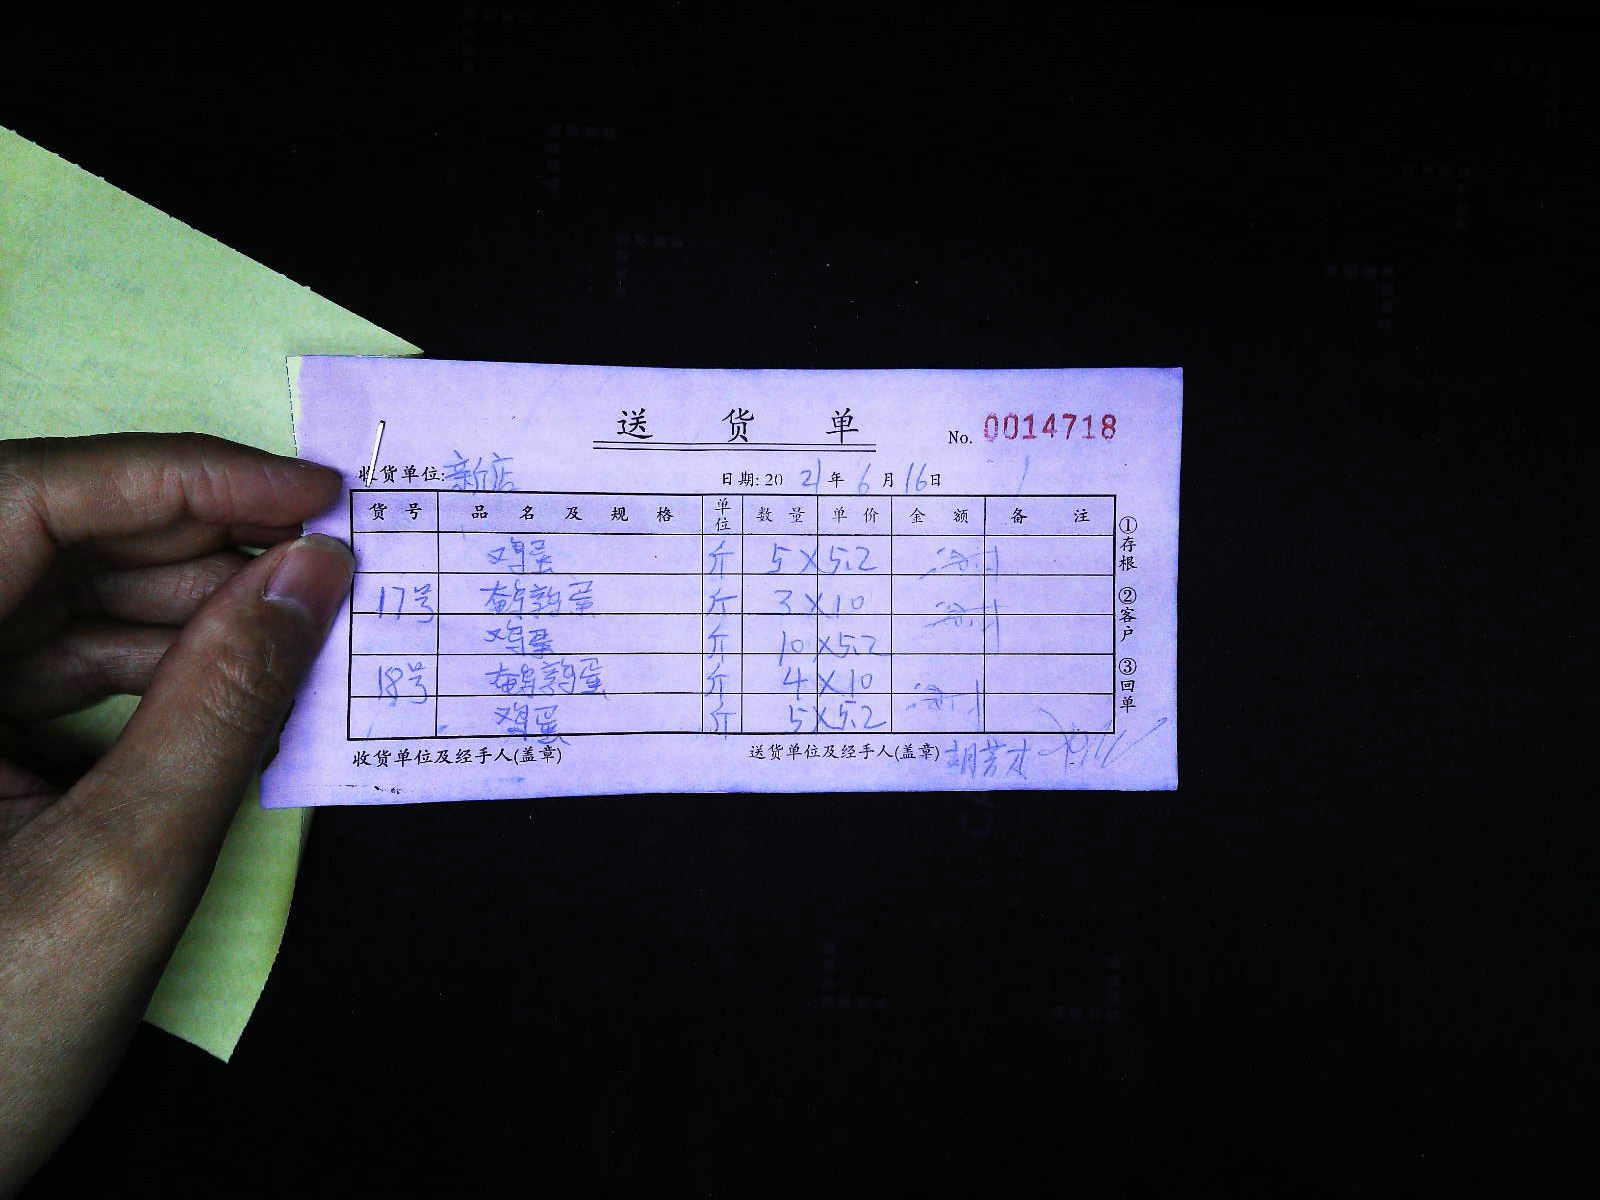 送 货 单
No. 0014718
收货单位: 新店
日期: 2021年6月16日
货号 品名及规格 单位 数量 单价 金额 备注
鸡蛋 斤 5 × 5.2
17号 鹌鹑蛋 斤 3 × 10
鸡蛋 斤 10 × 5.2
18号 鹌鹑蛋 斤 4 × 10
鸡蛋 斤 5 × 5.2
①存根 ②客户 ③回单
收货单位及经手人(盖章)
送货单位及经手人(盖章) 胡芳才